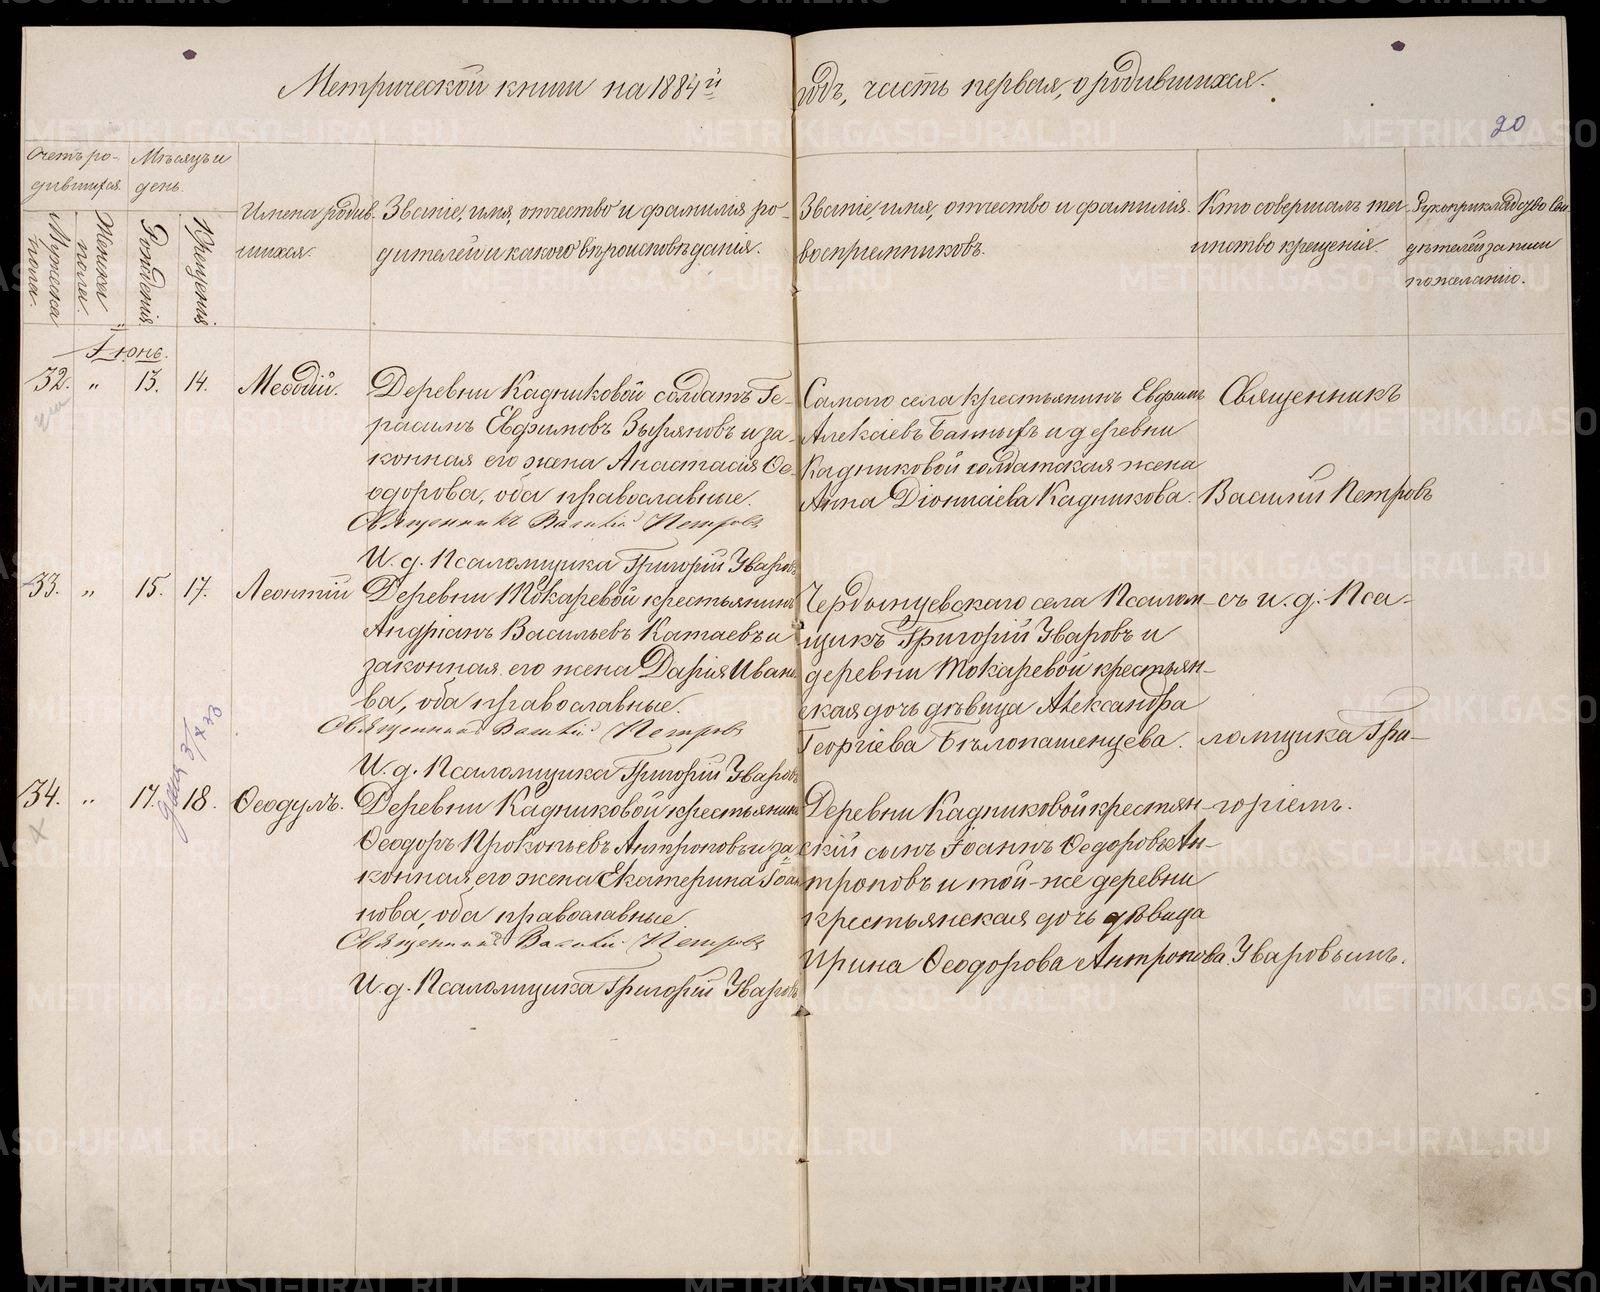 Метрической книги на 1884й годъ, часть первая, о родившихся.
20
Счетъ ро-
дившихся.
Мѣсяцъ и
день.
Мужска
пола.
Женска
пола.
Рожденія
Крещенія
Имена родив-
шихся.
Званіе, имя, отчество и фамилія ро-
дителей и какого вѣроисповѣданія.
Званіе, имя, отчество и фамилія
воспріемниковъ.
Кто совершалъ та-
инство крещенія.
Рукоприкладство сви-
дѣтелей записи
по желанію.
Іюнь.
32. „ 13. 14. Меѳодій.
Деревни Кадниковой солдатъ Ге-
расимъ Евфимовъ Зыряновъ и за-
конная его жена Анастасія Ѳе-
одорова, оба православные.
Священникъ Василій Петровъ
И. д. Псаломщика Григорій Уваровъ
Самаго села крестьянинъ Евфимъ
Алексіевъ Банныхъ и деревни
Кадниковой солдатская жена
Анна Діонисіева Кадникова.
Священникъ
Василій Петровъ
33. „ 15. 17. Леонтій
Деревни Токаревой крестьянинъ
Андріанъ Васильевъ Катаевъ и
законная его жена Дарія Ивано-
ва, оба православные.
Священникъ Василій Петровъ
И. д. Псаломщика Григорій Уваровъ
Чердынцевскаго села Псалом-
щикъ Григорій Уваровъ и
деревни Токаревой крестьян-
ская дочь дѣвица Александра
Георгіева Бѣлопашенцева.
съ и. д. Пса-
ломщика Гри-
34. „ 17. 18. Ѳеодулъ.
Деревни Кадниковой крестьянинъ
Ѳеодоръ Прокопьевъ Антроповъ и за-
конная его жена Екатерина Іоан-
нова, оба православные
Священникъ Василій Петровъ
И. д. Псаломщика Григорій Уваровъ
Деревни Кадниковой крестьян-
скій сынъ Іоаннъ Ѳедоровъ Ан-
троповъ и той-же деревни
крестьянская дочь дѣвица
Ирина Ѳеодорова Антропова
горіемъ.
Уваровымъ.